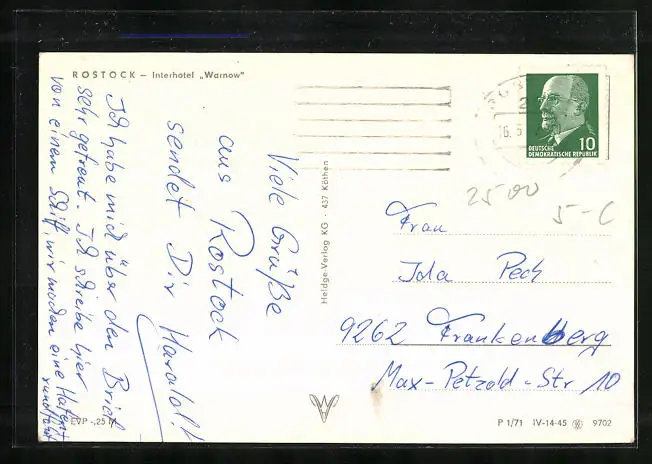 ROSTOCK – Interhotel „Warnow"
Viele Grüße
aus Rostock
sendet Dir Harald!
Ich habe mich über den Brief
sehr gefreut. Ich schreibe hier
von einem Schiff, wir machen eine Hafen
rundfahrt
EVP -,25 M
Heldge-Verlag KG · 437 Köthen
16.5
10
DEUTSCHE
DEMOKRATISCHE REPUBLIK
2500
5-C
Frau
Ida Pech
9262 Frankenberg
Max-Petzold-Str 10
P 1/71 IV-14-45 9702